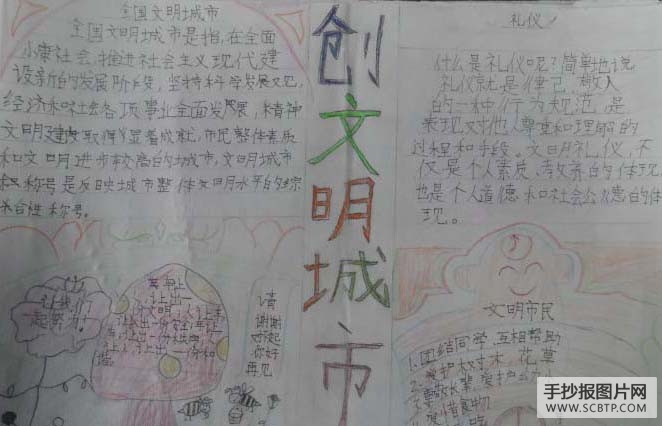 全国文明城市
全国文明城市是指,在全面
小康社会,推进社会主义现代建
设新的发展阶段,坚持科学发展文见,
经济和社会各项事业全面发展,精神
文明建设取得显着成就,市民整体素质
和文明进步较高的城市,文明城市
称号是反映城市整体文明水平的综
合性称号。
创
文
明
城
市
礼仪
什么是礼仪呢?简单地说
礼仪就是律己,敬人
的一种行为规范,是
表现对他人尊重和理解的
过程和手段。文明礼仪,不
仅是个人素质、教养的体现,
也是个人道德和社会公德的体
现。
让我们
一起努力
请
谢谢
对不起
你好
再见
文明市民
1.团结同学,互相帮助
2.爱护树木 花草
手抄报图片网
WWW.SCBTP.COM